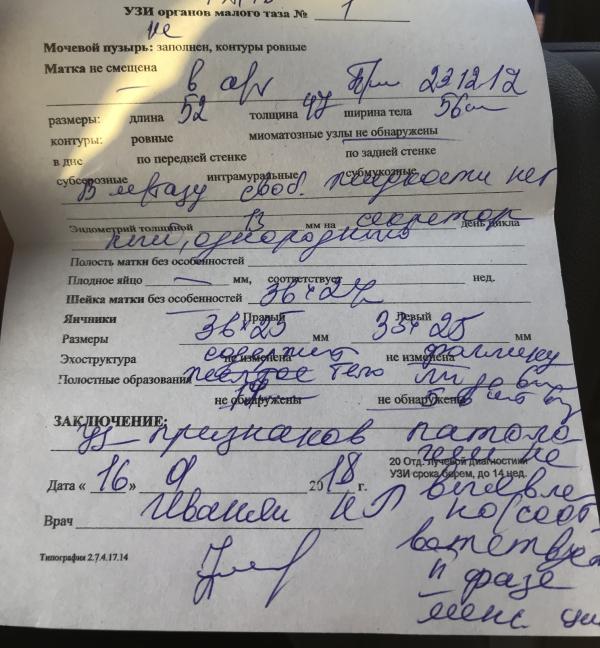 УЗИ органов малого таза № 1
не
Мочевой пузырь: заполнен, контуры ровные
Матка не смещена
в
размеры: длина 52 толщина 47 ширина тела 56
контуры: ровные миоматозные узлы не обнаружены
в дне по передней стенке по задней стенке
субсерозные интрамуральные субмукозные
В м/тазу своб. жидкости нет
Эндометрий толщиной 13 мм на секретор день цикла
ный, однородный
Полость матки без особенностей
Плодное яйцо — мм, соответствует нед.
Шейка матки без особенностей 36 × 27
Яичники Правый Левый
Размеры 36 × 25 мм 35 × 25 мм
содержит фоллику
Эхоструктура не изменена не изменена
Полостные образования желтое тело лы до
не обнаружены не обнаружены
ЗАКЛЮЧЕНИЕ:
уз признаков патоло
гии не
20 Отд. лучевой диагностики
УЗИ срока берем, до 14 нед.
Дата « 16 » 2018 г.
выявле
Врач
но/соот
ветствует
Типография 2.7.4.17.14
II фазе
менс. ци